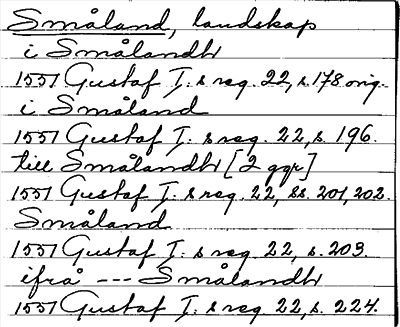 Småland, landskap
i Smålandh
1551 Gustaf I:s reg. 22, s. 178 orig.
i Småland
1551 Gustaf I:s reg. 22, s. 196.
till Smålandh [2 ggr]
1551 Gustaf I:s reg. 22, ss. 201, 202.
Småland
1551 Gustaf I:s reg. 22, s. 203.
ifrå --- Smålandh
1551 Gustaf I:s reg. 22, s. 224.